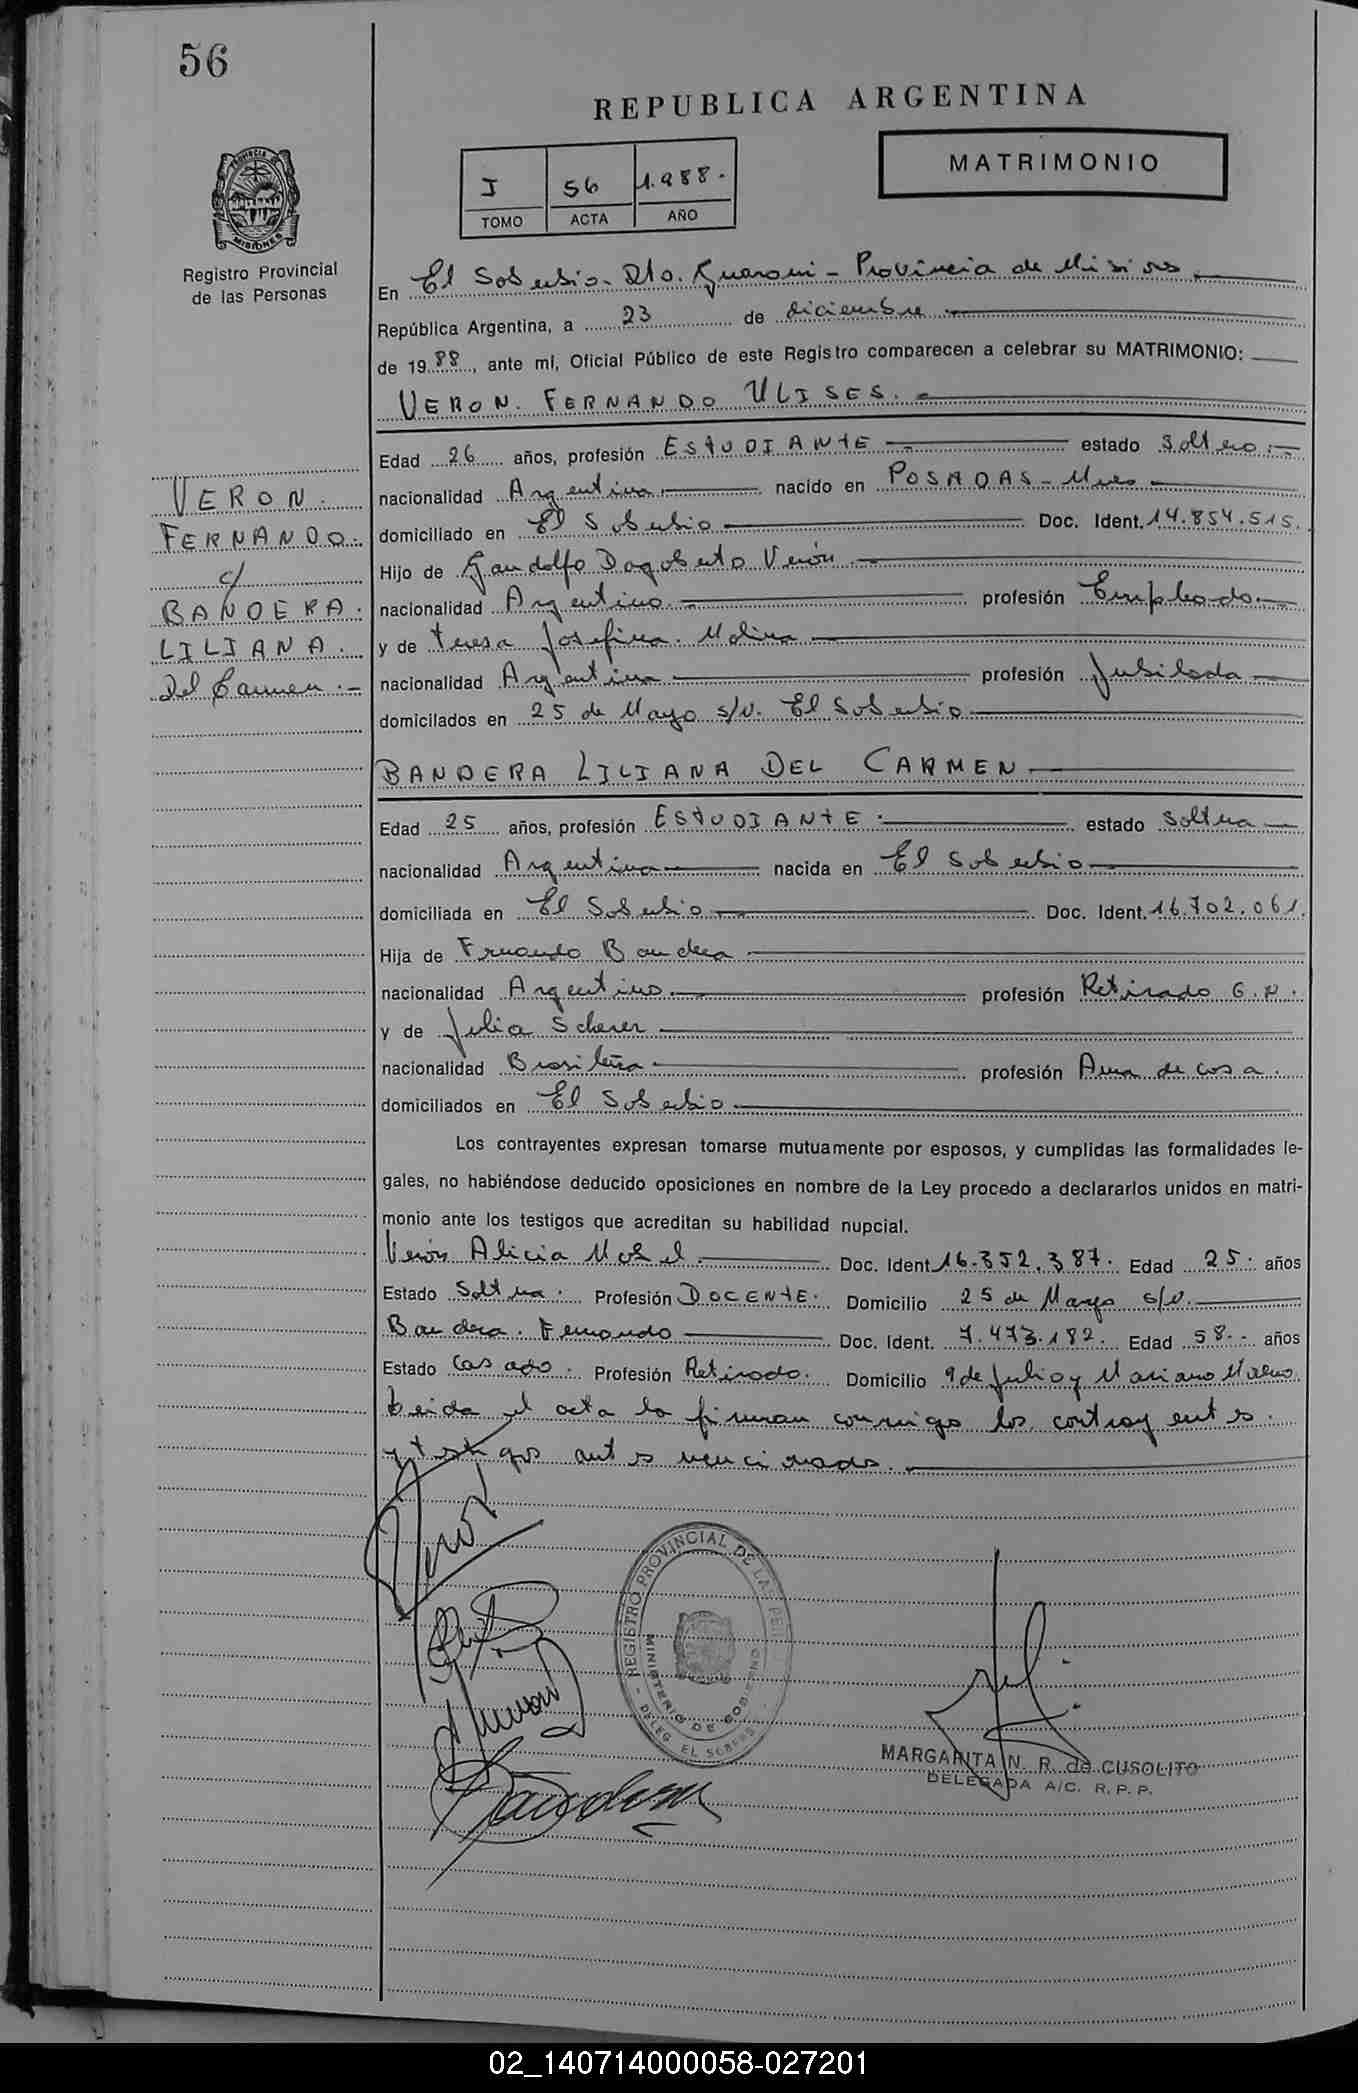 56
REPUBLICA ARGENTINA
MATRIMONIO
I 56 1.988.
TOMO ACTA AÑO
PROVINCIA DE MISIONES
Registro Provincial
de las Personas
En El Soberbio - Dto. Guarani - Provincia de Misiones
República Argentina, a 23 de diciembre
de 1988, ante mi, Oficial Público de este Registro comparecen a celebrar su MATRIMONIO:
VERON. FERNANDO ULISES.
Edad 26 años, profesión ESTUDIANTE estado Soltero
nacionalidad Argentina nacido en POSADAS - Mnes
domiciliado en El Soberbio Doc. Ident. 14.854.515.
Hijo de Gandolfo Dagoberto Verón
nacionalidad Argentino profesión Empleado
y de Teresa Josefina. Molina
nacionalidad Argentina profesión Jubilada
domicilados en 25 de Mayo s/n. El Soberbio
VERON.
FERNANDO.
c/
BANDERA.
LILIANA.
Del Carmen.-
BANDERA LILIANA DEL CARMEN
Edad 25 años, profesión ESTUDIANTE. estado Soltera
nacionalidad Argentina nacida en El Soberbio
domiciliada en El Soberbio Doc. Ident. 16.702.061.
Hija de Fernando Bandera
nacionalidad Argentino profesión Retirado G.N.
y de Julia Scherer
nacionalidad Brasileña profesión Ama de casa.
domiciliados en El Soberbio
Los contrayentes expresan tomarse mutuamente por esposos, y cumplidas las formalidades le-
gales, no habiéndose deducido oposiciones en nombre de la Ley procedo a declararlos unidos en matri-
monio ante los testigos que acreditan su habilidad nupcial.
Verón Alicia Mabel Doc. Ident. 16.352.387. Edad 25. años
Estado Soltera. Profesión DOCENTE. Domicilio 25 de Mayo s/n.
Bandera. Fernando Doc. Ident. 7.473.182. Edad 58. años
Estado Casado. Profesión Retirado. Domicilio 9 de Julio y Mariano Moreno
Leida el acta la firman conmigo los contrayentes.
y testigos antes mencionados.
REGISTRO PROVINCIAL DE LAS PER
MINISTERIO DE GOBIERNO
DELEG. EL SOBERB
MARGARITA N. R. de CUSOLITO
DELEGADA A/C. R.P.P.
02_140714000058-027201